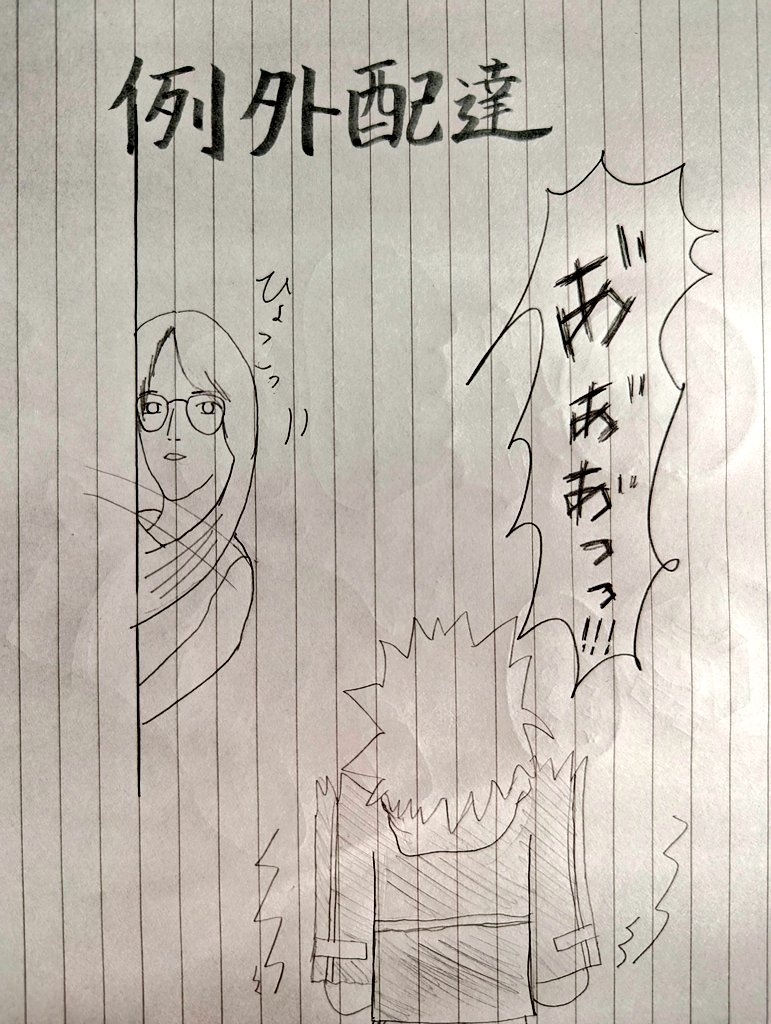 例外配達
ひょこっ
あ゛あ゛あ゛っっ!!!